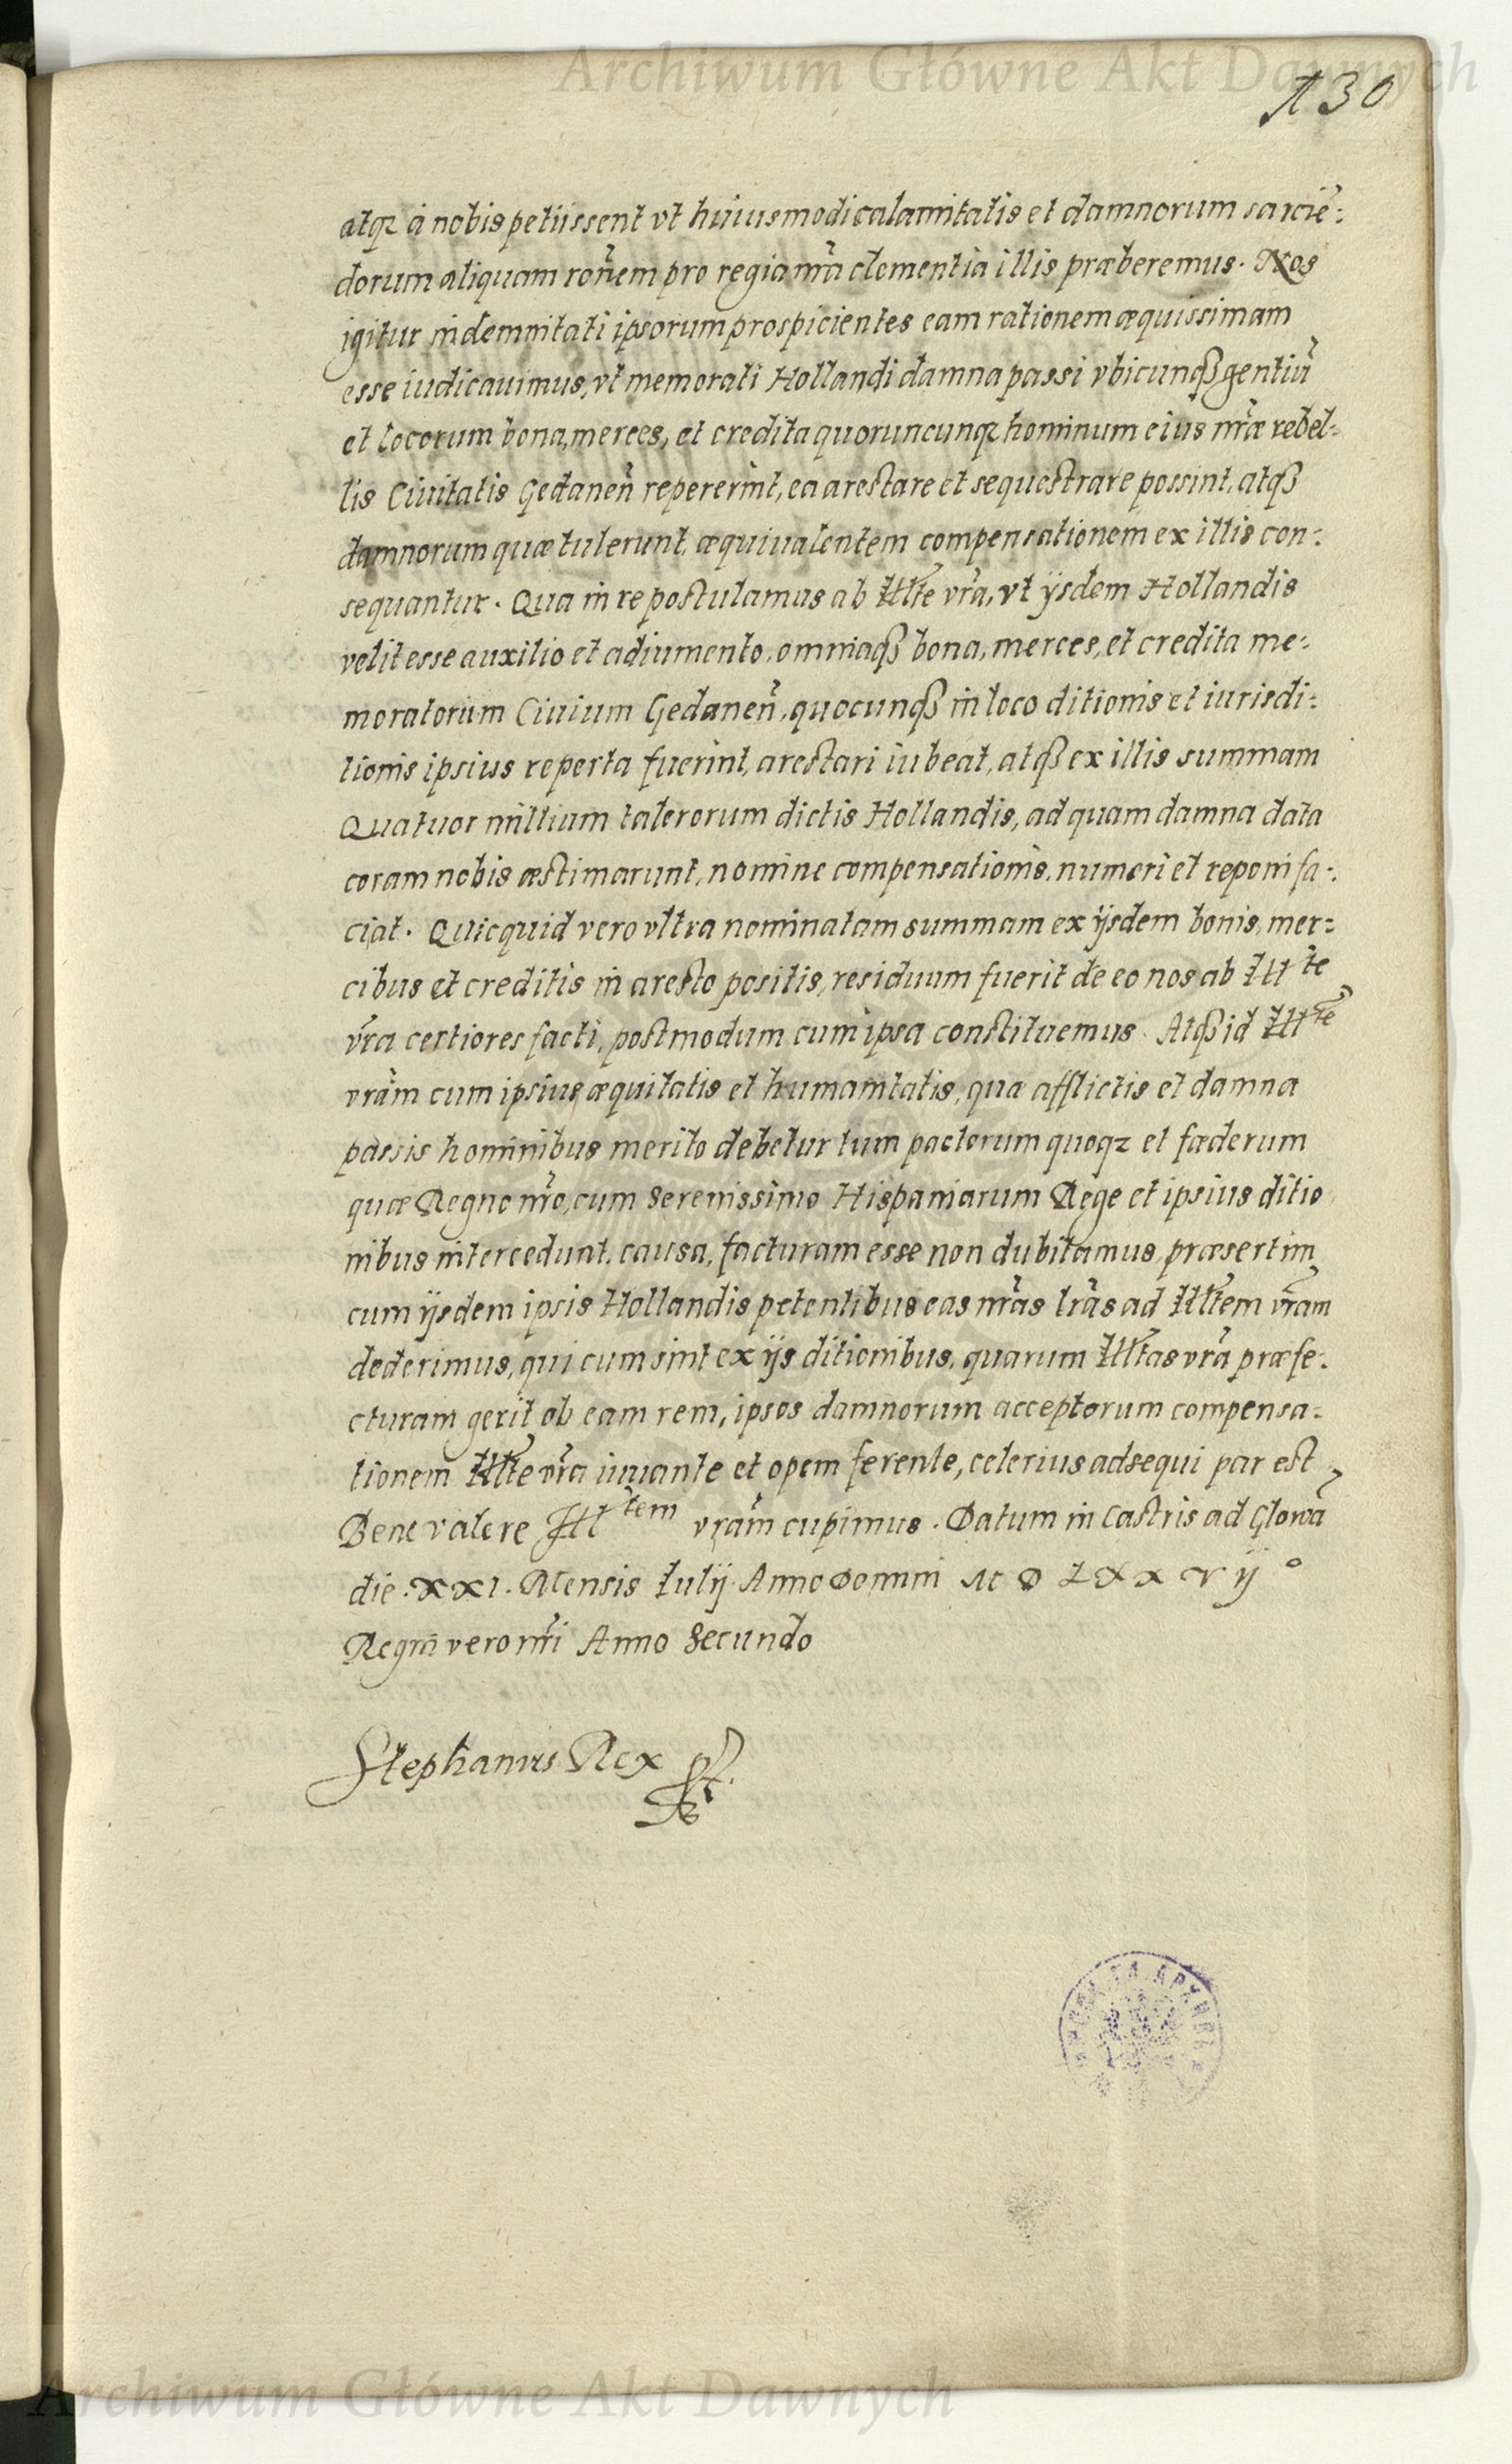 Archiwum Główne Akt Dawnych
130
atqz à nobis petiissent vt huiusmodi calamitatis et damnorum sarciẽ:
dorum aliquam rõnem pro regia nr̃a clementia illis præberemus. Nos
igitur indemnitati ipsorum prospicientes eam rationem æquissimam
esse iudicauimus, vt memorati Hollandi damna passi vbicunqꝫ gentiũ
et locorum bona, merces, et credita quoruncunqz hominum eius nr̃æ rebel:
lis Ciuitatis Gedaneñ repererint, ea arestare et sequestrare possint, atqꝫ
damnorum quæ tulerunt, æquiualentem compensationem ex illis con:
sequantur. Qua in re postulamus ab Illt̃e vr̃a, vt ijsdem Hollandis
velit esse auxilio et adiumento, omniaqꝫ bona, merces, et credita me:
moratorum Ciuium Gedaneñ, quocunqꝫ in loco ditionis et iurisdi:
tionis ipsius reperta fuerint, arestari iubeat, atqꝫ ex illis summam
Quatuor millium talerorum dictis Hollandis, ad quam damna data
coram nobis æstimarunt, nomine compensationis, numeri et reponi fa:
ciat. Quicquid vero vltra nominatam summam ex ijsdem bonis, mer:
cibus et creditis in aresto positis, residuum fuerit de eo nos ab Ill^te
vr̃a certiores facti, postmodum cum ipsa constituemus. Atqꝫ id Ill^te
vr̃am cum ipsius æquitatis et humanitatis, qua afflictis et damna
passis hominibus merito debetur tum pactorum quoqz et fæderum
quæ Regno nr̃o, cum Serenissimo Hispaniarum Rege et ipsius ditio
nibus intercedunt, causa, facturam esse non dubitamus, præsertim
cum ijsdem ipsis Hollandis petentibus eas nr̃as lr̃as ad Illt̃em vr̃am
dederimus, qui cum sint ex ijs ditionibus, quarum Illt̃as vr̃a præfe:
cturam gerit ob eam rem, ipsos damnorum acceptorum compensa:
tionem Illt̃e vr̃a iuuante et opem ferente, celerius adsequi par est
Bene valere Ill^tem vr̃am cupimus. Datum in Castris ad Glowã
die. XXI. Mensis Iulij Anno Domini M D LXXVij°
Regni vero nr̃i Anno Secundo
Stephanus Rex
Archiwum Główne Akt Dawnych